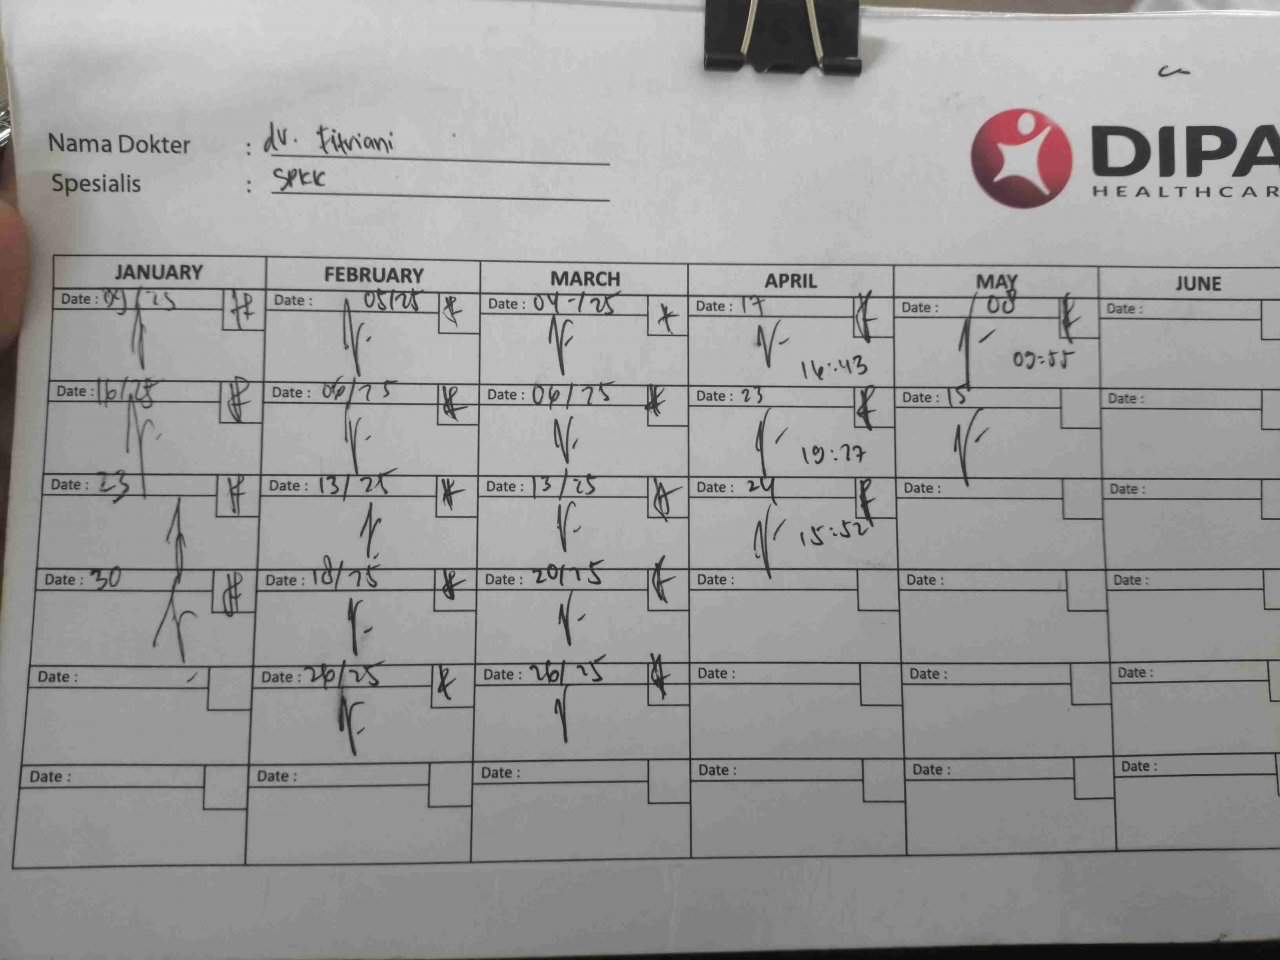 Nama Dokter : dr. Fitriani
Spesialis : SPKK
DIPA
HEALTHCAR
JANUARY FEBRUARY MARCH APRIL MAY JUNE
Date : 09/25 Date : 05/25 Date : 04-/25 Date : 17 Date : 08 Date :
16:43 09:55
Date : 16/25 Date : 06/25 Date : 06/25 Date : 23 Date : 15 Date :
19:27
Date : 23 Date : 13/25 Date : 13/25 Date : 24 Date : Date :
15:52
Date : 30 Date : 18/25 Date : 20/25 Date : Date : Date :
Date : Date : 26/25 Date : 26/25 Date : Date : Date :
Date : Date : Date : Date : Date : Date :